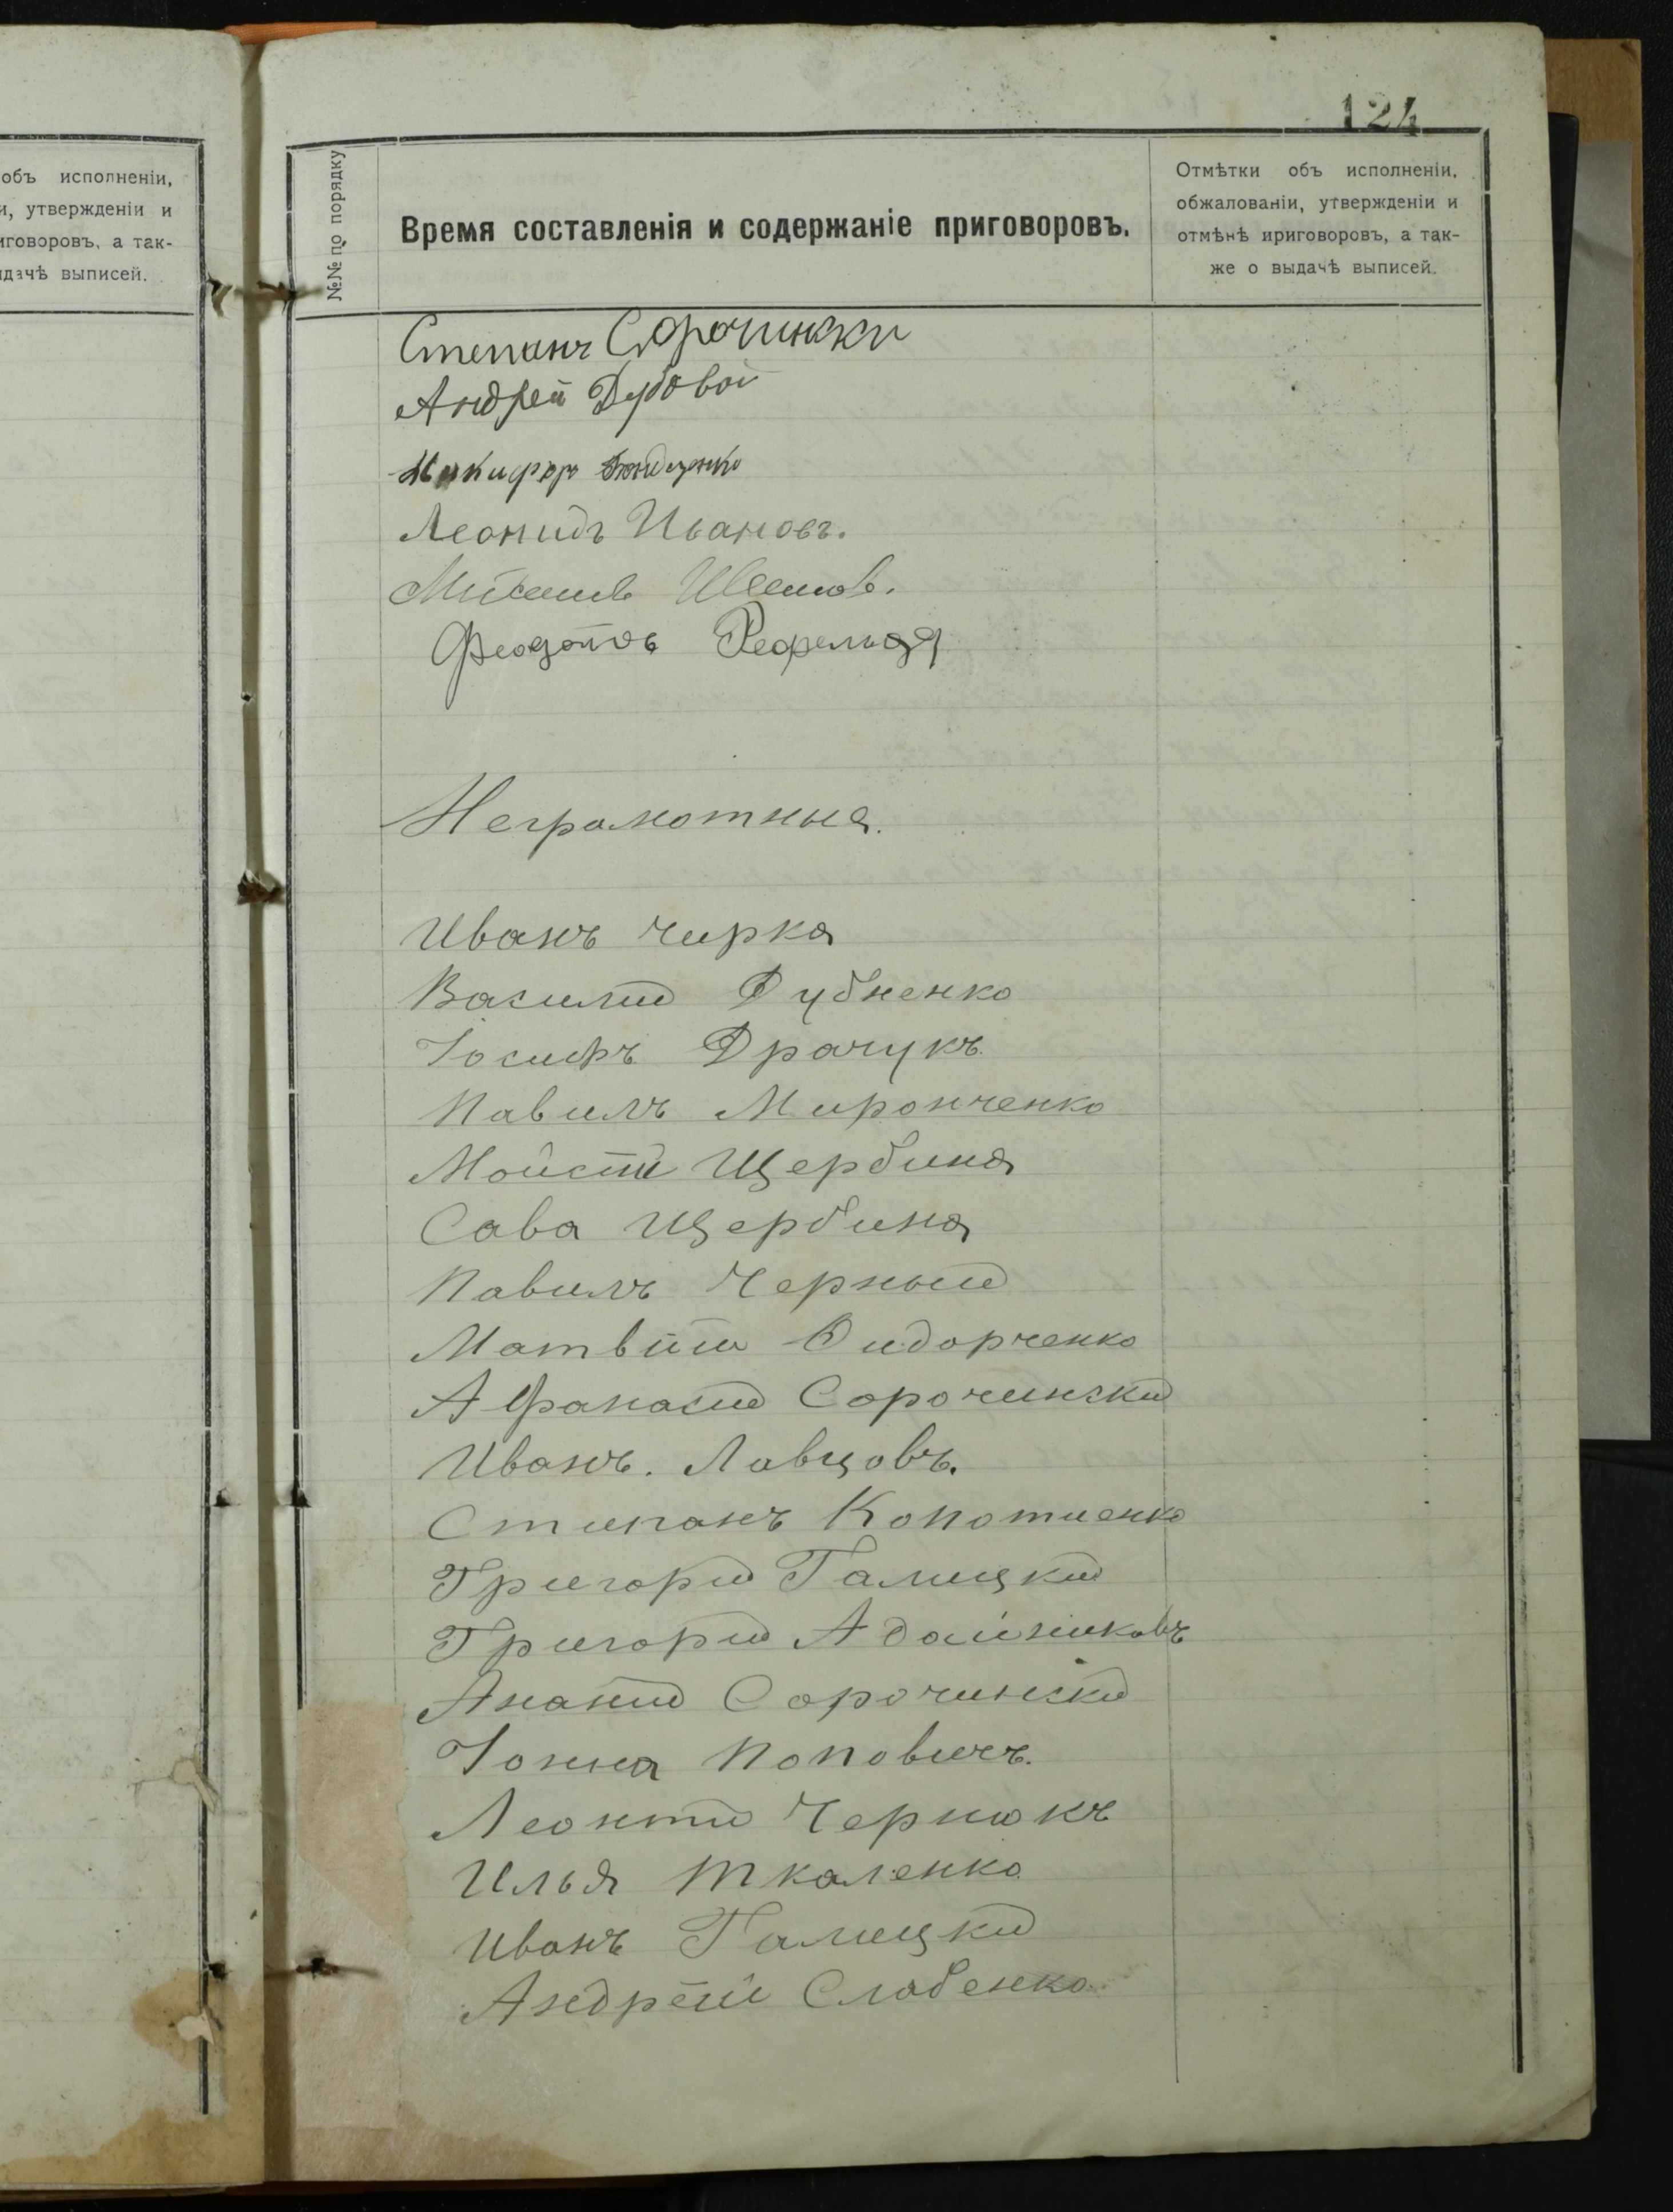 объ исполненіи,
и, утвержденіи и
иговоровъ, а так-
дачѣ выписей.
124
№№ по порядку
Время составленія и содержаніе приговоровъ.
Отмѣтки объ исполненіи,
обжалованіи, утвержденіи и
отмѣнѣ приговоровъ, а так-
же о выдачѣ выписей.
Степанъ Сорочински
Андрей Дубовой
Никифоръ
Леонидъ Ивановъ.
Феодотъ
Неграмотныя.
Иванъ Чирка
Василий Дубненко
Іосифъ Драчукъ
Павилъ Миронченко
Мойсий Щербина
Сава Щербина
Павилъ Черный
Матвій Сидорченко
Афанасий Сорочинский
Иванъ. Лавцовъ.
Стипанъ Копотиенко
Григорий Галицкий
Григорий
Ананий Сорочинский
Іоина Поповичъ.
Леонтий Чернюкъ
Илья Ткаленко
Иванъ Галицкий
Андрей Слабенко